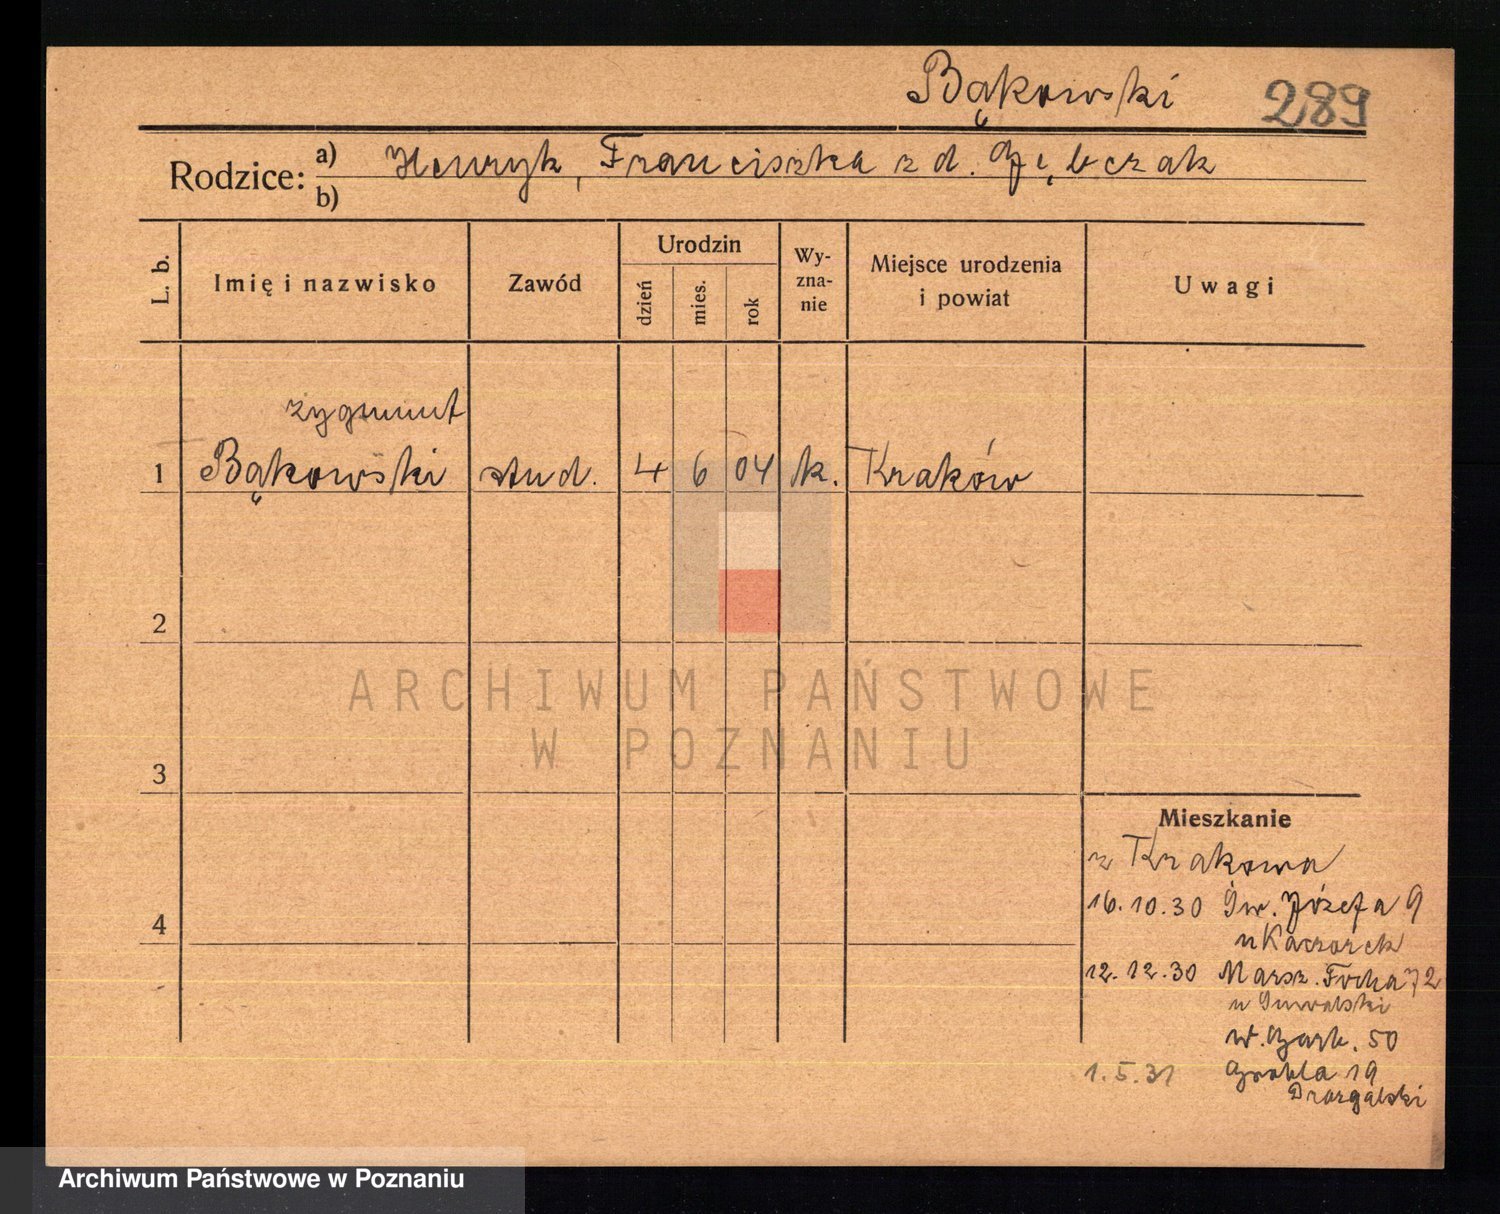 Bąkowski 289
Rodzice: a) Henryk, Franciszka z d. Gębczak
b)
L. b. Imię i nazwisko Zawód Urodzin dzień mies. rok Wy-zna-nie Miejsce urodzenia i powiat Uwagi
Zygmunt
1 Bąkowski stud. 4 6 04 k. Kraków
2
ARCHIWUM PAŃSTWOWE
W POZNANIU
3
Mieszkanie
z Krakowa
16.10.30 Św. Józefa 9
4
u Kaczorek
12.12.30 Marsz. Focha 72
u
W. Garb. 50
1.5.31 Grobla 19
Drozgalski
Archiwum Państwowe w Poznaniu